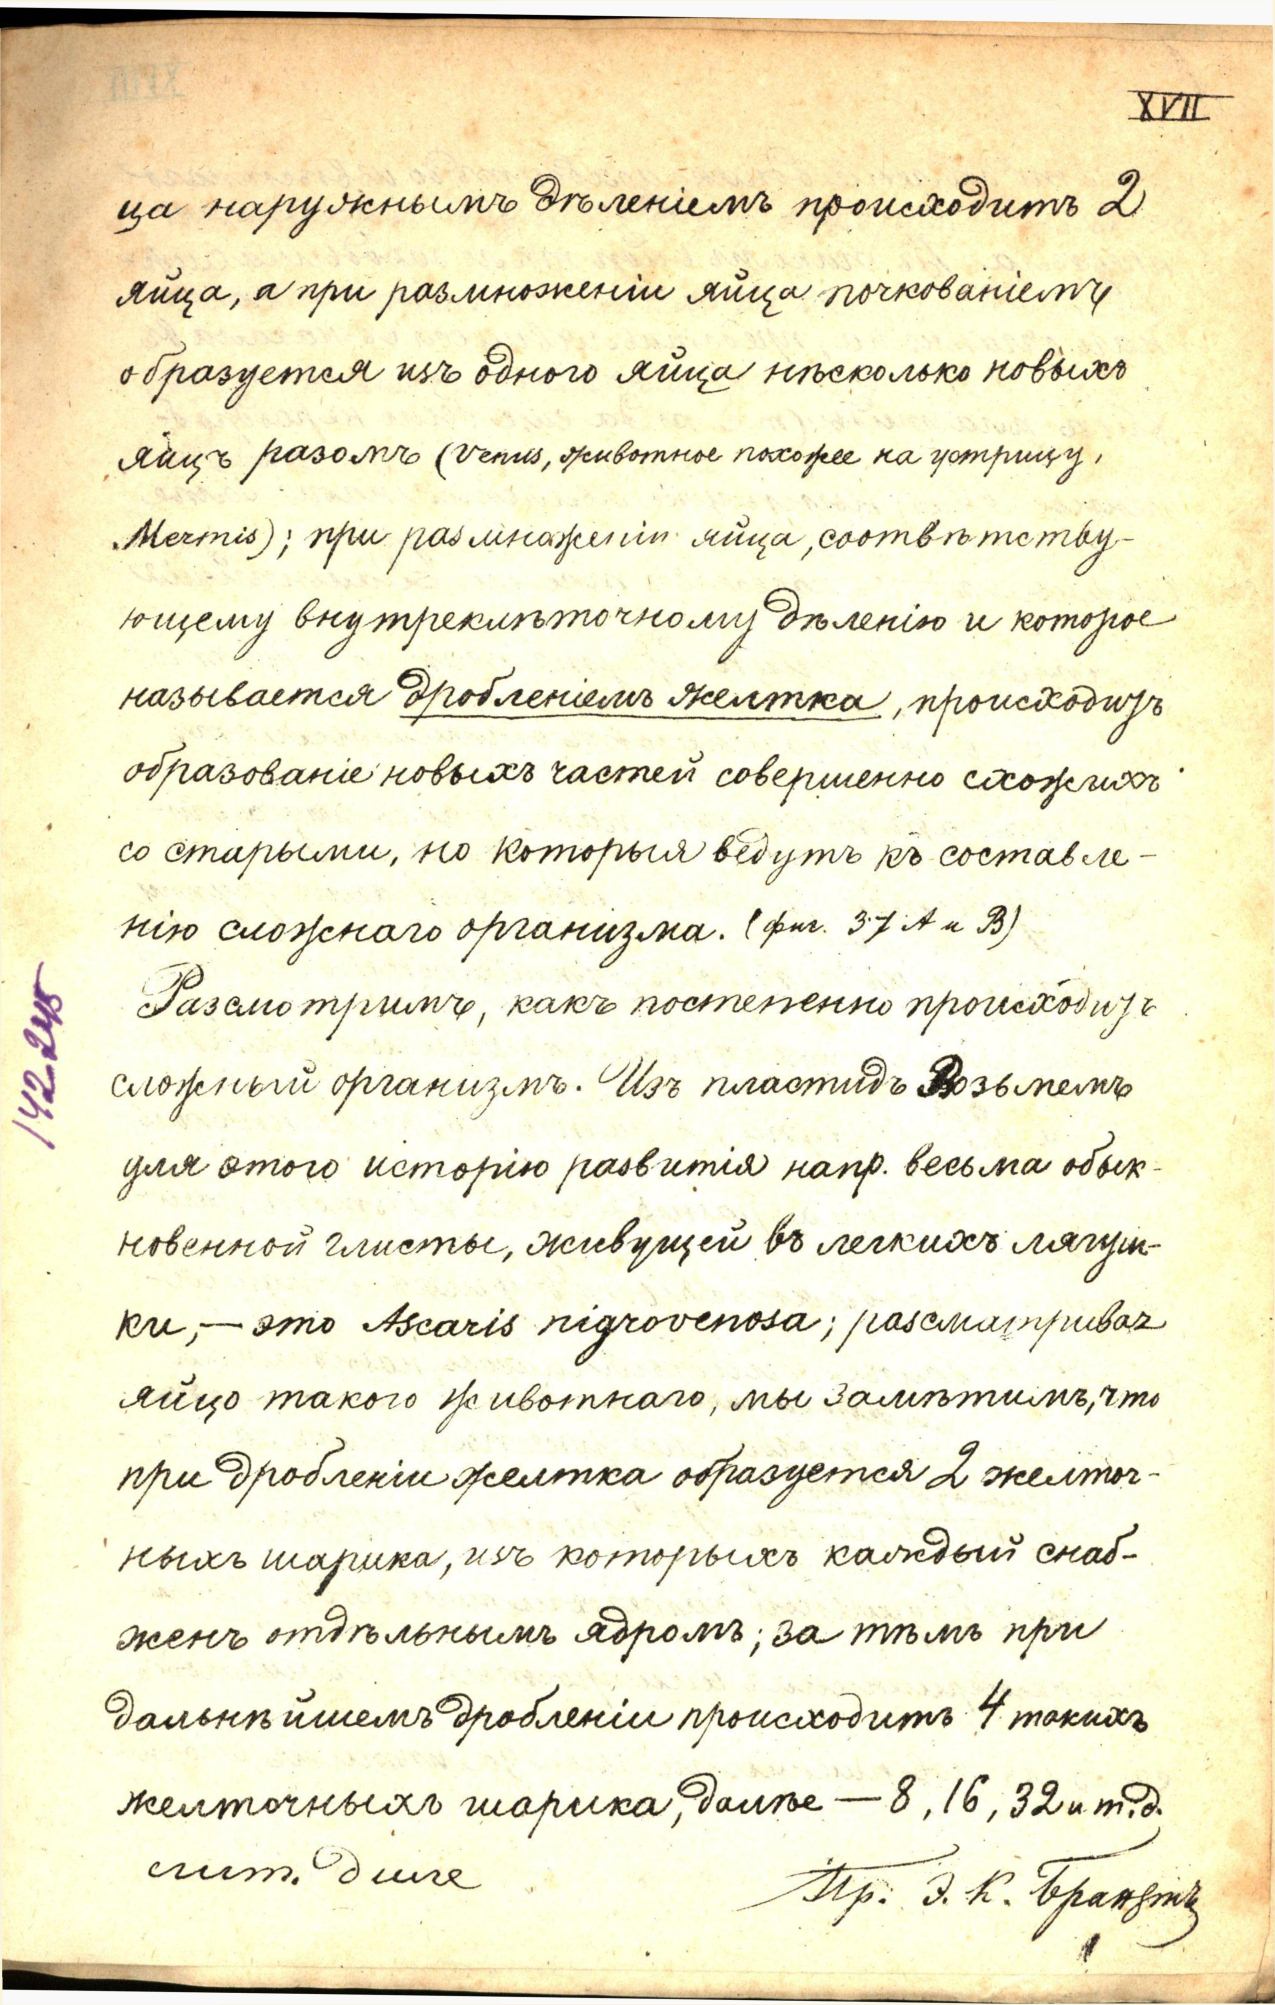 XVII
ца наружнымъ дѣленіемъ происходитъ 2
яйца, а при размноженіи яйца почкованіемъ
образуется изъ одного яйца нѣсколько новыхъ
яицъ разомъ (Venus, животное похожее на устрицу,
Mermis); при размноженіи яйца, соотвѣтству-
ющему внутреклѣточному дѣленію и которое
называется дробленіемъ желтка, происходитъ
образованіе новыхъ частей совершенно схожихъ
со старыми, но которыя ведутъ къ составле-
нію сложнаго организма. (фиг. 37 А и В)
Разсмотримъ, какъ постепенно происходитъ
сложный организмъ. Изъ пластидъ Возьмемъ
для этого исторію развитія напр. весьма обык-
новенной глисты, живущей въ легкихъ лягуш-
ки, — это Ascaris nigrovenosa; разсматривая
яйцо такого животнаго, мы замѣтимъ, что
при дробленіи желтка образуется 2 желточ-
ныхъ шарика, изъ которыхъ каждый снаб-
женъ отдѣльнымъ ядромъ; за тѣмъ при
дальнѣйшемъ дробленіи происходитъ 4 такихъ
желточныхъ шарика, далѣе — 8, 16, 32 и т. д.
лит.
Пр. Э. К. Брандтъ
142245
XVIII